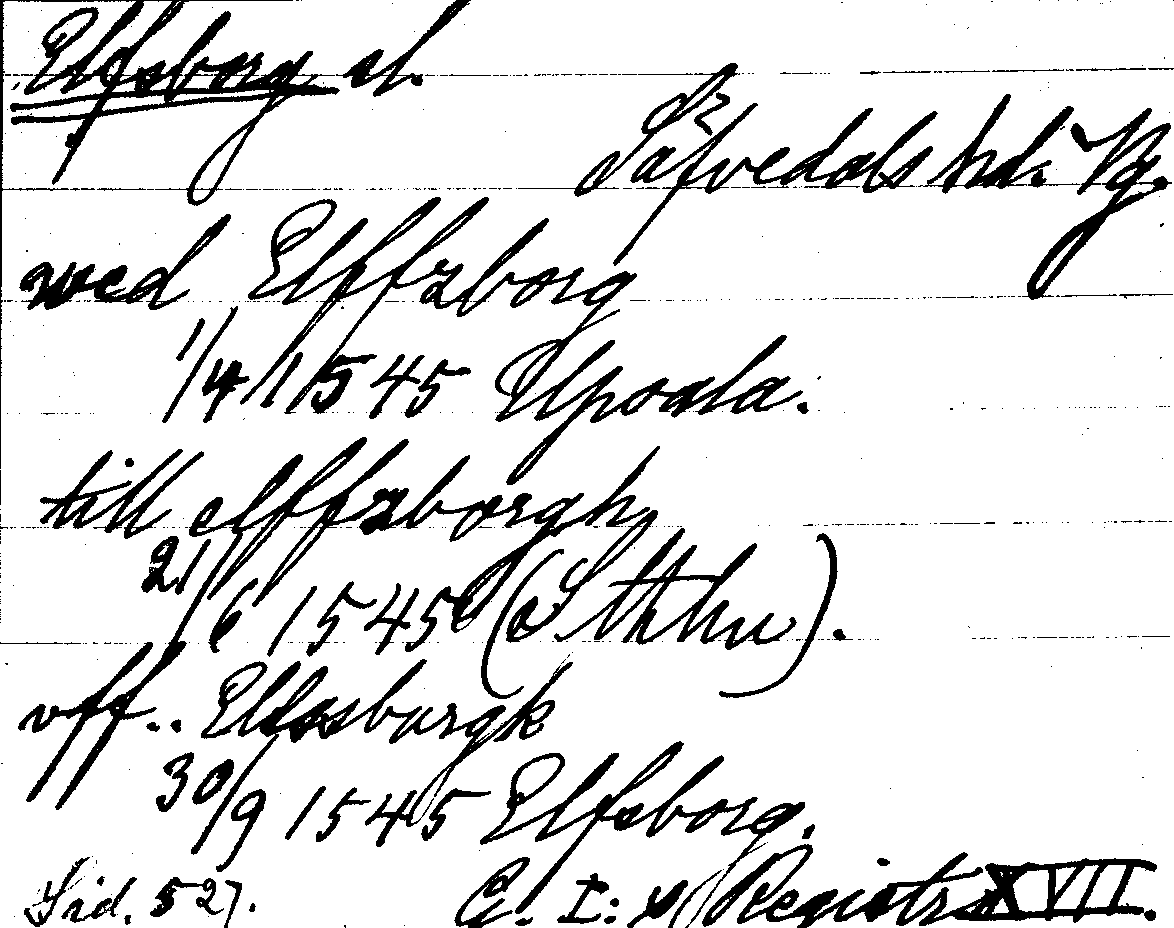 Elfsborg sl.
Säfvedals hd. Vg.
wed Elffzborg
1/4 1545 Upsala.
till elffzborgh
21/6 1545 (Sthlm).
vff.. Elfssborgk
30/9 1545 Elfsborg.
Sid. 527. G. I:s Registr. XVII.